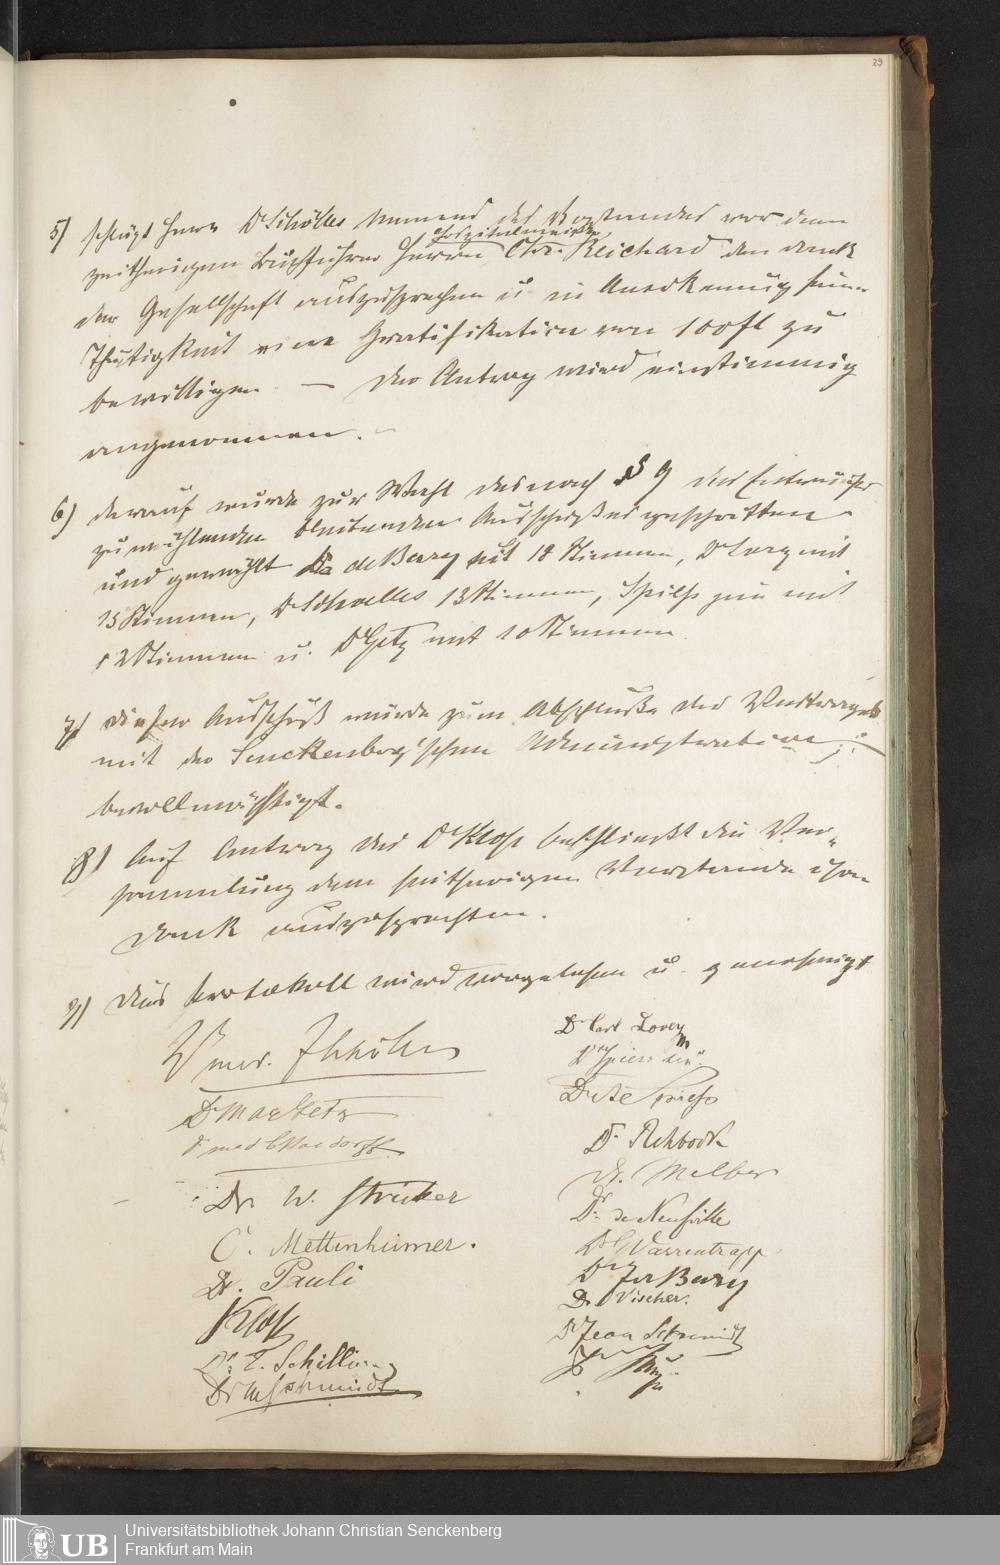 29
5) schlägt Herr Dr Schölles Namens des Vorstandes vor dem
Hospitalmeister
zeitherigen Buchführer Herrn Chr. Reichard den Dank
der Gesellschaft auszusprechen u. in Anerkennung seiner
Thätigkeit eine Gratifikation von 100 fl zu
bewilligen. — Der Antrag wird einstimmig
angenommen. –
6) darauf wurde zur Wahl des nach § 9 des Entwurfes
zu wählenden bleibenden Ausschußes geschritten
und gewählt Dr de Bary mit 18 Stimmen, Dr Lorey mit
15 Stimmen, Dr Schoelles 13 Stimmen, Spiess jun mit
12 Stimmen u. Dr Getz mit 10 Stimmen
7) dieser Ausschuß wurde zum Abschluße des Vertrages
mit der Senckenberg'schen Administration
bevollmächtigt.
8) Auf Antrag des Dr Kloss beschließt die Ver-
sammlung dem seitherigen Vorstande ihren
Dank auszusprechen.
9) Das Protokoll wird vorgelesen u. genehmigt
Dr Carl Lorey
Dr Spiess sen
Dr Max Getz
Dr Rehbock
Dr. Melber
Dr. W. Stricker
Dr. de Neufville
C. Mettenheimer.
Dr G Varrentrapp
Dr. Pauli
de Bary
Dr Vischer.
Kloss
Dr Jean Schmidt
Dr. E. Schilling
Dr M Schmidt
Universitätsbibliothek Johann Christian Senckenberg
UB
Frankfurt am Main